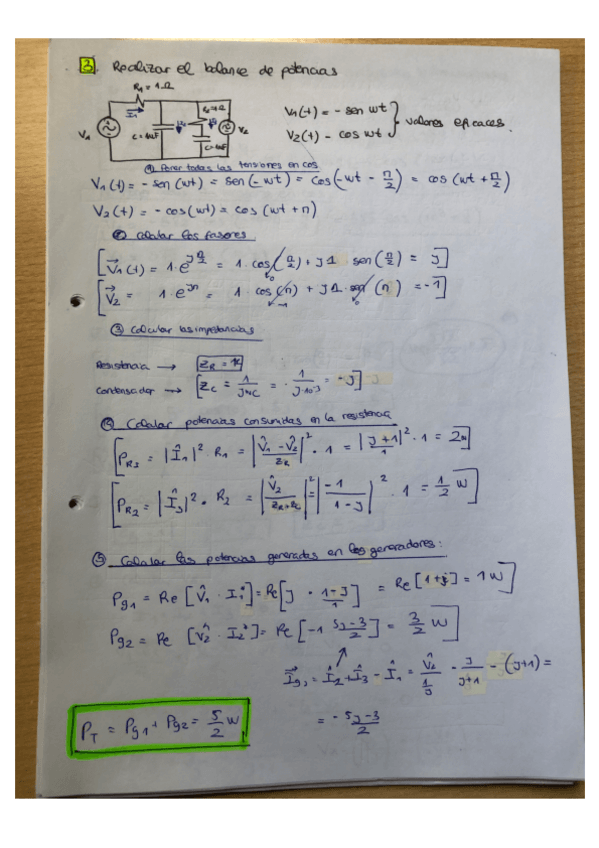 3. Realizar el balance de potencias
R₁ = 1Ω
R₂=1Ω
I₁
V₁
C = 4uF
V₂
C=4uF
V₁(t) = - sen wt
V₂(t) - cos wt
} valores eficaces.
① Poner todas las tensiones en cos
V₁(t) = - sen(wt) = sen(-wt) = cos(-wt - π/2) = cos(wt + π/2)
V₂(t) = - cos(wt) = cos(wt + π)
② Calcular los fasores
[V₁(t) = 1·e^(jπ/2) = 1·cos(π/2) + j1 sen(π/2) = j]
[V₂ = 1·e^(jπ) = 1·cos(π) + j1·sen(π) = -1]
③ Calcular las impedancias
Resistencia → [Z_R = 1]
Condensador → [Z_C = 1/(jwC) = 1/(j·10^-3) = -j]
④ Calcular potencias consumidas en la resistencia
[P_R1 = |Î₁|² · R₁ = |(V̂₁ - V̂₂)/Z_R|² · 1 = |(j+1)/1|² · 1 = 2w]
[P_R2 = |Î₃|² · R₂ = |V̂₂/(Z_R+Z_C)|² = |-1/(1-j)|² · 1 = 1/2 w]
⑤ Calcular las potencias generadas en los generadores:
P_g1 = Re[V̂₁ · I₁*] = Re[j · (1-j)/1] = Re[1+j] = 1w]
P_g2 = Re [V̂₂ · I₂*] = Re[-1 (5j-3)/2] = 3/2 w]
I_g2 = Î₂ + Î₃ - Î₁ = V̂₂/(1/j) - j/(j+1) - (j+1) =
= - (5j-3)/2
P_T = P_g1 + P_g2 = 5/2 w